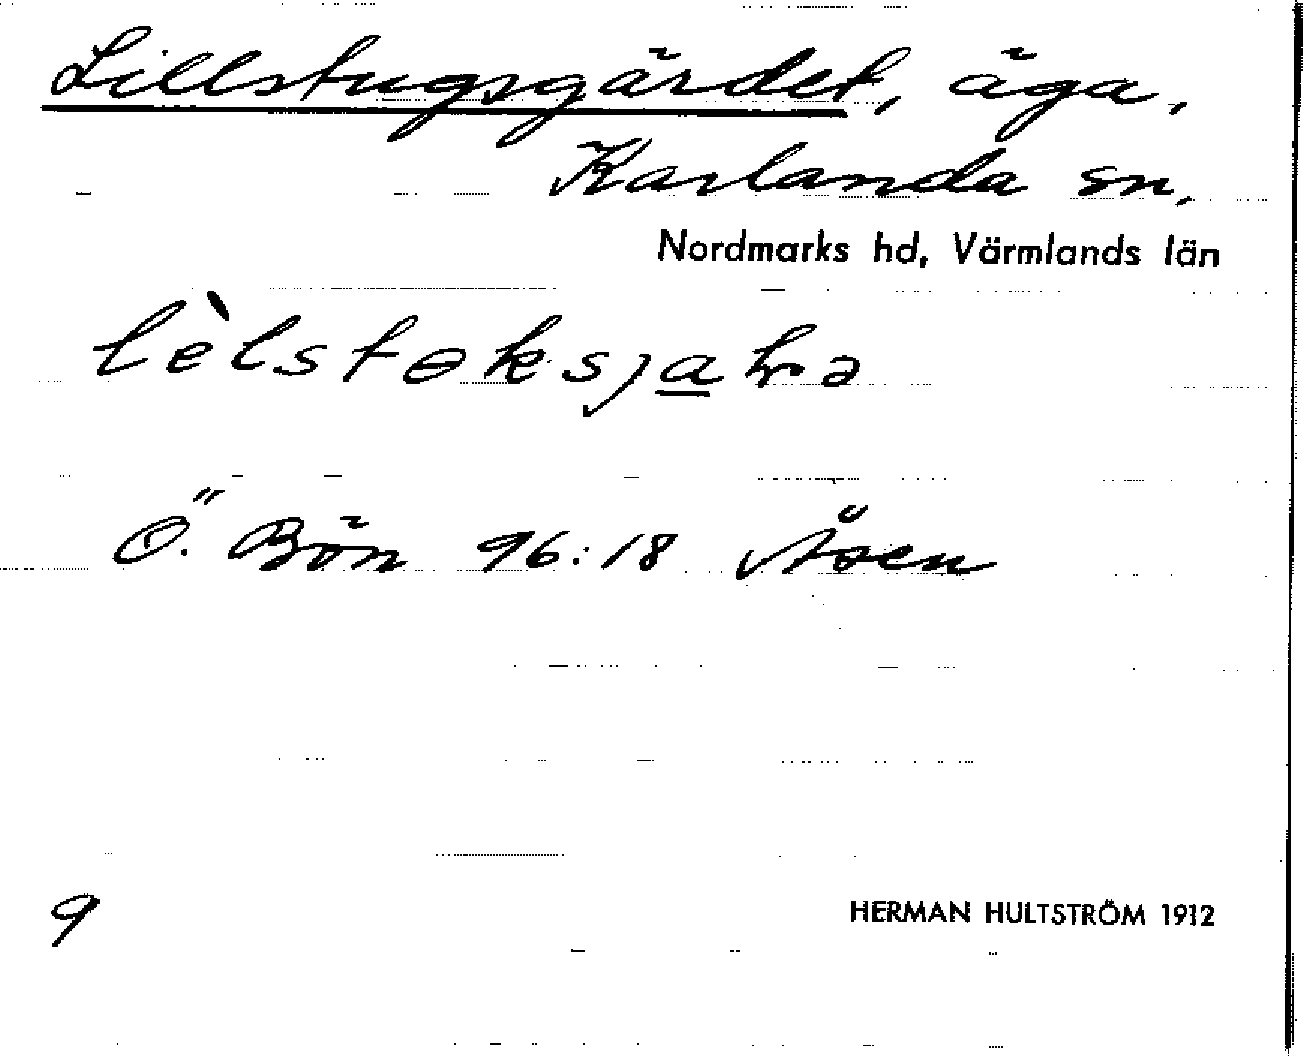 Lillstugsgärdet, äga,
Karlanda sn,
Nordmarks hd, Värmlands län
lèlstɵksjaħə
Ö. Bön 96:18 Åsen
9
HERMAN HULTSTRÖM 1912